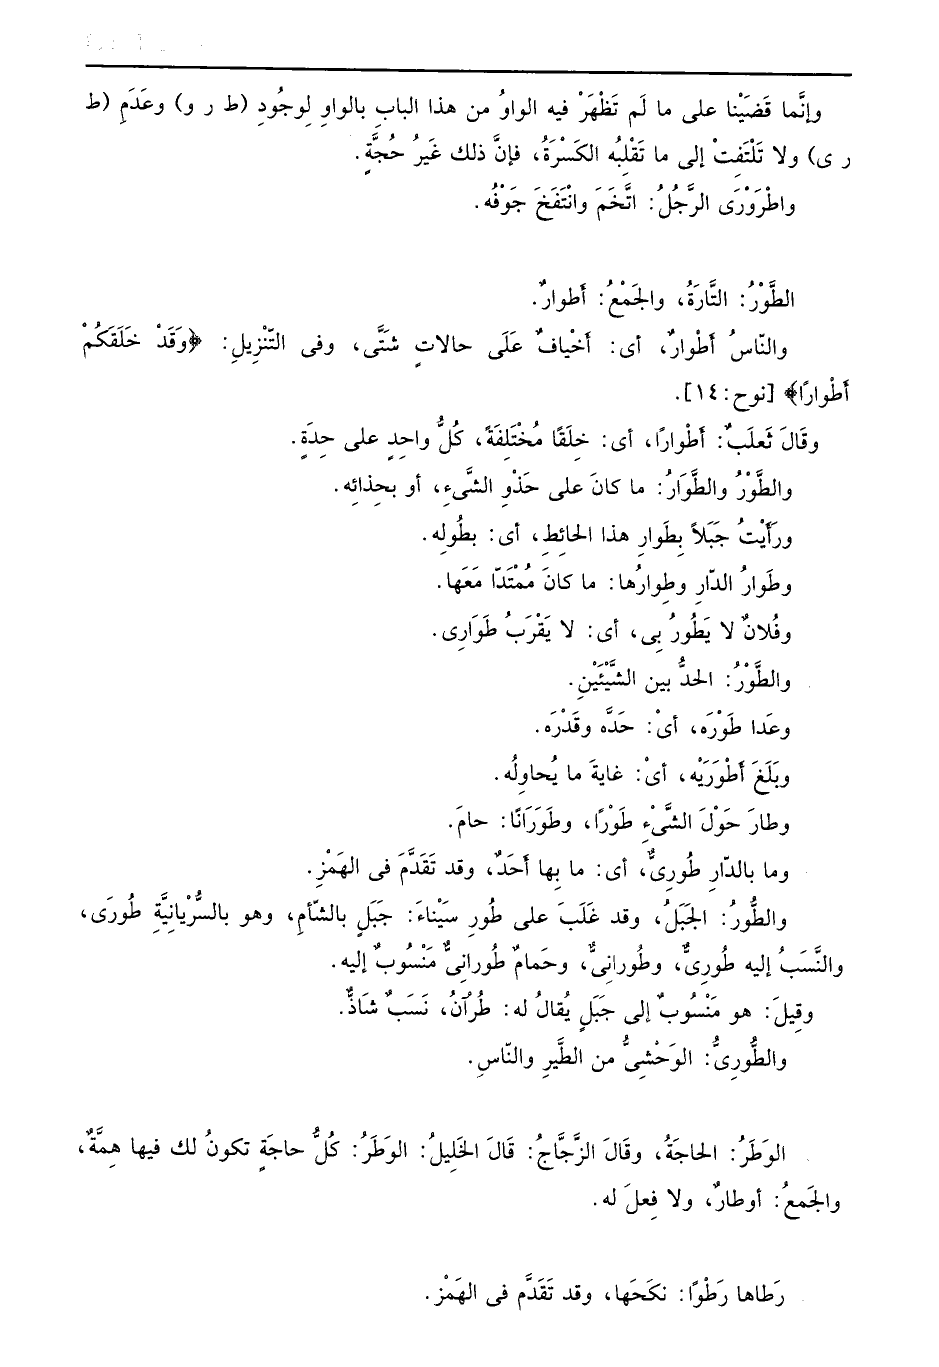 وإنَّما قَضَيْنا على ما لَم تَظْهَرْ فيه الواوُ من هذا الباب بالواوِ لوجُودِ (ط ر و) وعَدَمِ (ط
ر ى) ولا تَلْتَفِتْ إلى ما تَقْلِبُه الكَسْرَةُ، فإنَّ ذلك غَيرُ حُجَّةٍ.
واطْرَوْرَى الرَّجُلُ: اتَّخَمَ وانْتَفَخَ جَوْفُه.
الطَّوْرُ: التَّارَةُ، والجَمْعُ: أطوارٌ.
والنّاسُ أَطْوارٌ، أى: أَخْيافٌ عَلَى حالاتٍ شتَّى، وفى التّنْزيلِ: ﴿وَقَدْ خَلَقَكُمْ
أَطْوارًا﴾ [نوح: ١٤].
وقَالَ ثَعلَبٌ: أَطْوارًا، أى: خِلَقًا مُخْتَلِفَةً، كُلُّ واحِدٍ على حِدَةٍ.
والطَّوْرُ والطَّوَارُ: ما كانَ على حَذْوِ الشَّىءِ، أو بحِذائِه.
ورَأَيْتُ جَبَلاً بِطَوارِ هذا الحائطِ، أى: بطُولِه.
وطَوارُ الدّارِ وطِوارُها: ما كانَ مُمْتَدّا مَعَها.
وفُلانٌ لا يَطُورُ بِى، أى: لا يَقْرَبُ طَوَارِى.
والطَّوْرُ: الحدُّ بين الشَّيْئَيْنِ.
وعَدا طَوْرَه، أىْ: حَدَّه وقَدْرَه.
وبَلَغَ أَطْوَرَيْه، أىْ: غايةَ ما يُحاوِلُه.
وطارَ حَوْلَ الشَّىْءِ طَوْرًا، وطَوَرَانًا: حامَ.
وما بالدّارِ طُورِىٌّ، أى: ما بها أَحَدٌ، وقد تَقَدَّمَ فى الهَمْزِ.
والطُّورُ: الجَبَلُ، وقد غَلَبَ على طُورِ سَيْناءَ: جَبَلٍ بالشّأمِ، وهو بالسُّرْيانِيَّةِ طُورَى،
والنَّسَبُ إليه طُورِىٌّ، وطُورانِىٌّ، وحَمامٌ طُورانِىٌّ مَنْسُوبٌ إليه.
وقِيلَ: هو مَنْسُوبٌ إلى جَبَلٍ يُقالُ له: طُرْآنُ، نَسَبٌ شَاذٌّ.
والطُّورِىُّ: الوَحْشِىُّ من الطَّيرِ والنّاسِ.
الوَطَرُ: الحاجَةُ، وقَالَ الزَّجَّاجُ: قَالَ الخَلِيلُ: الوَطَرُ: كُلُّ حاجَةٍ تكونُ لك فيها هِمَّةٌ،
والجَمعُ: أوطارٌ، ولا فِعلَ له.
رَطاها رَطْوًا: نكَحَها، وقد تَقَدَّم فى الهَمْز.